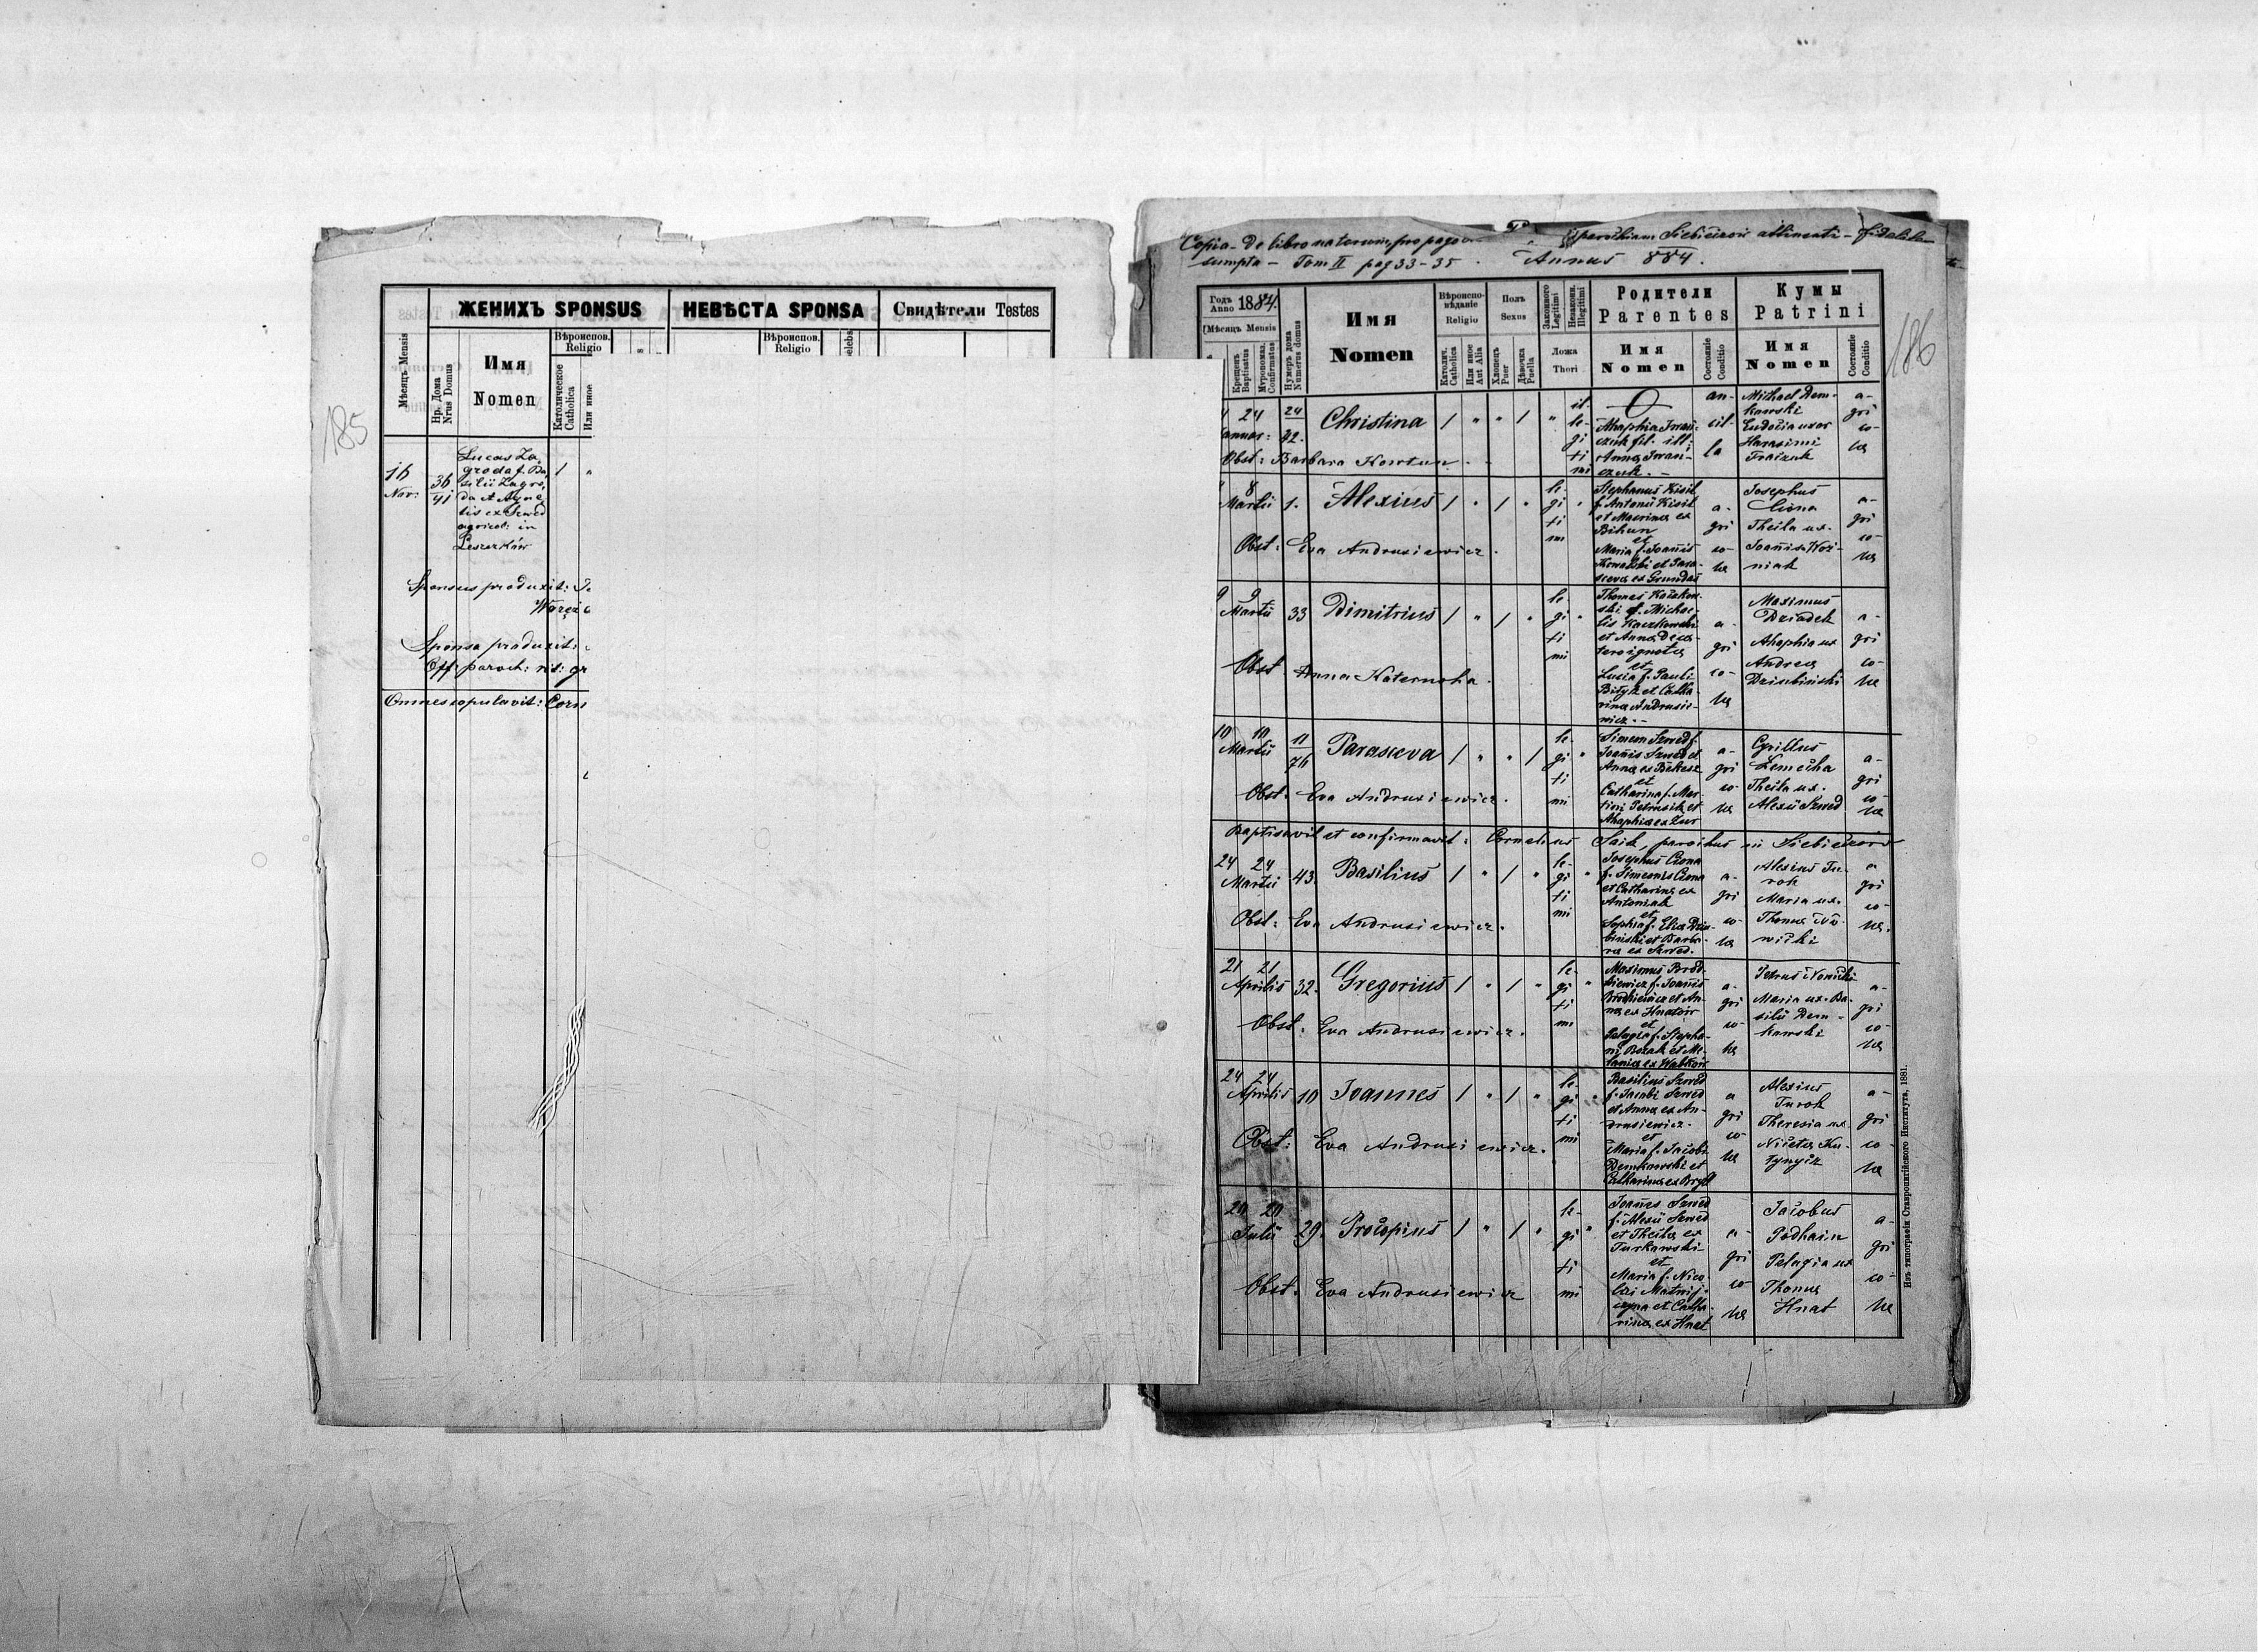 185
ЖЕНИХЪ SPONSUS
НЕВѢСТА SPONSA
Свидѣтели Testes
Мѣсяцъ Mensis
Нр. Дома
Nrus Domus
Имя
Nomen
Вѣроиспов.
Religio
Католическое
Catholica
Или иное
Вѣроиспов.
Religio
16
Nov:
36
41
Lucas Za
groda f. Ba
silii Zagro
da et Agne
tis ex Szwed
agricol: in
Leszczków
1
Sponsus produxit:
Sponsa produxit:
Off: paroch: rit: gr
Omnes copulavit: Corn
186
Copia de libro natorum pro pago parochiam Siebieczów attinenti - fidelit
sumpta - Tom II pag 33-35. Annus 884.
Годъ
Anno 1884.
Мѣсяцъ Mensis
Крещенъ
Baptisatus
Мѵропомаз.
Confirmatus
Нумеръ дома
Numerus domus
Имя
Nomen
Вѣроиспо-
вѣданіе
Religio
Католич.
Catholica
Или иное
Aut Alia
Полъ
Sexus
Хлопецъ
Puer
Дѣвочка
Puella
Законного
Legitimi
Незаконн.
Illegitimi
Ложа
Thori
Родители
Parentes
Имя
Nomen
Состояніе
Conditio
Кумы
Patrini
Имя
Nomen
Состояніе
Conditio
24
Januar:
24
42.
Christina
1 " " 1 "
il-
le-
gi
ti
mi
Ahaphia Iwań-
czuk fil. ill:
Anna Iwań-
czuk. -
an-
cil-
la
Michael Dem-
kowski
Eudocia uxor
Harasimi
a-
gri
co-
la
Obst: Barbara Kowtun.
8
Martii
1.
Alexius
1 " 1 "
le-
gi
ti
mi
"
Stephanus Kisil
f. Antonii Kisil
et Marina ex
Bihun
et
Maria f. Joannis
Kowalski et Para-
sceva ex Grundas
a-
gri
co-
la
Josephus
Ciona
Thecla ux.
Joannis Woź-
niak
a-
gri
co-
la
Obst: Eva Andrusiewicz.
9 9
Martii
33
Dimitrius
1 " 1 "
le-
gi
ti
mi
"
Thomas Kaczkow
ski f. Michae-
lis Kaczkowski
et Anna De
cetero ignota
et
Lucia f. Pauli
Bityk et Catha-
rina Andrusie-
wicz. -
a-
gri
co-
la
Maximus
Dziadek
Ahaphia ux
Andrea
Dziubiński
a-
gri
co-
la
Obst Anna Koternoha.
10 10
Martii
11
76
Parasceva
1 " " 1
le-
gi
ti
mi
"
Simeon Szwed f.
Joannis Szwed et
Anna ex Bekesz
et
Catharina f. Mar-
tini Petrusik et
Ahaphia ex Zur
a-
gri
co-
la
Cyrillus
Lemicha
Thecla ux.
Alexii Szwed
a-
gri
co-
la
Obst. Eva Andrusiewicz.
Baptisavit et confirmavit: Cornelius Saik, parochus in Siebieczów
24 24
Martii
43.
Basilius
1 " 1 "
le-
gi
ti
mi
"
Josephus Ciona
f. Simeonis Ciona
et Catharina ex
Antoniak
et
Sophia f. Elia Dziu-
biński et Barba-
ra ex Szwed.
a-
gri
co-
la
Alexius Tu-
rok
Maria ux.
Thoma No-
wicki
a
gri
co-
la.
Obst: Eva Andrusiewicz.
21 21
Aprilis
32.
Gregorius
1 " 1 "
le-
gi
ti
mi
"
Maximus Brod-
kiewicz f. Joannis
Brodkiewicz et An-
na ex Hnatów
et
Pelagia f. Stepha-
ni Bozak et Me-
lania ex Wałków
a-
gri
co-
la
Petrus Nowicki
Maria ux. Ba-
silii Dem-
kowski
a-
gri
co-
la
Obst. Eva Andrusiewicz.
24 24
Aprilis
10
Joannes
1 " 1 "
le-
gi
ti
mi
"
Basilius Szwed
f. Jacobi Szwed
et Anna ex An-
drusiewicz.
et
Maria f. Jacobi
Demkowski et
Catharina ex Bryd
a
gri
co-
la
Alexius
Turok
Theresia ux.
Niceta Ku-
tynycz
a-
gri
co-
la
Obst: Eva Andrusiewicz.
20 20
Julii
29.
Procopius
1 " 1 "
le-
gi
ti
mi
"
Joannes Szwed
f. Alexii Szwed
et Thecla ex
Turkowski
et
Maria f. Nico-
lai Matwij-
czyna et Catha-
rina ex Hnat
a-
gri
co-
la
Jacobus
Podhain
Pelagia ux
Thoma
Hnat
a-
gri
co-
la
Obst. Eva Andrusiewicz
Изъ типографіи Ставропигійского Института, 1881.